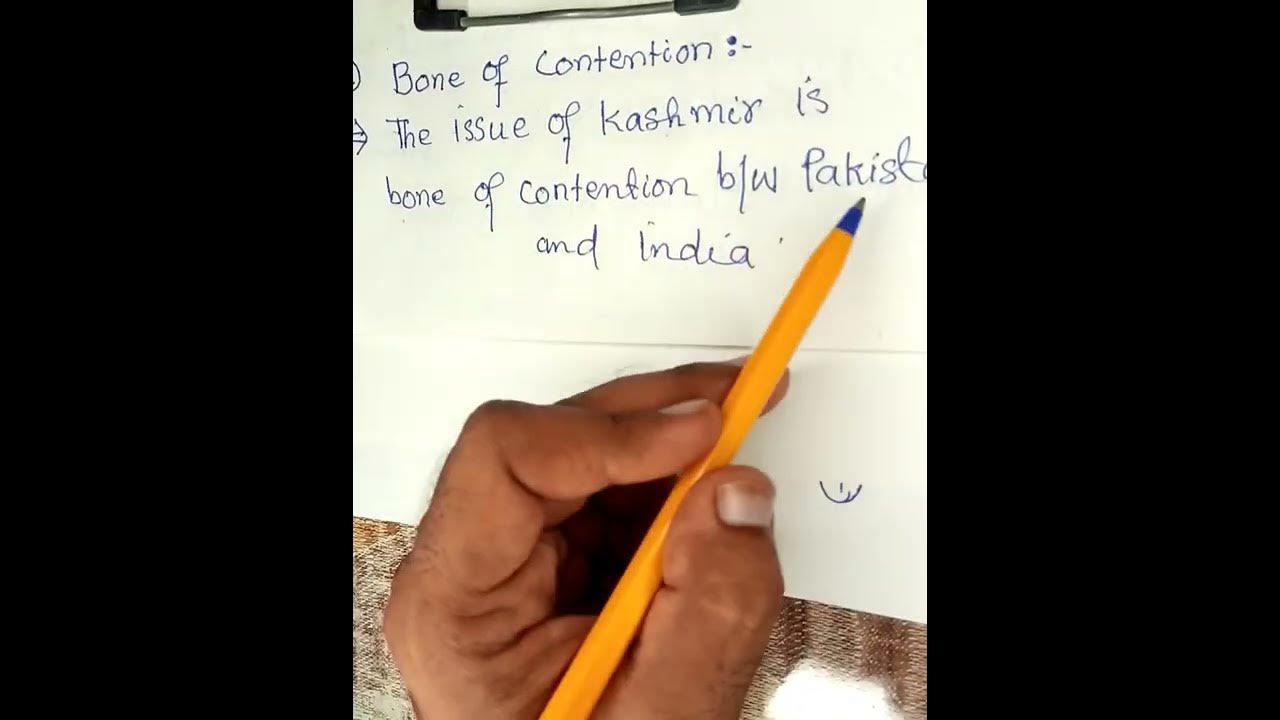 Bone of Contention :-
⇒ The issue of Kashmir is
bone of contention b/w Pakist
and India